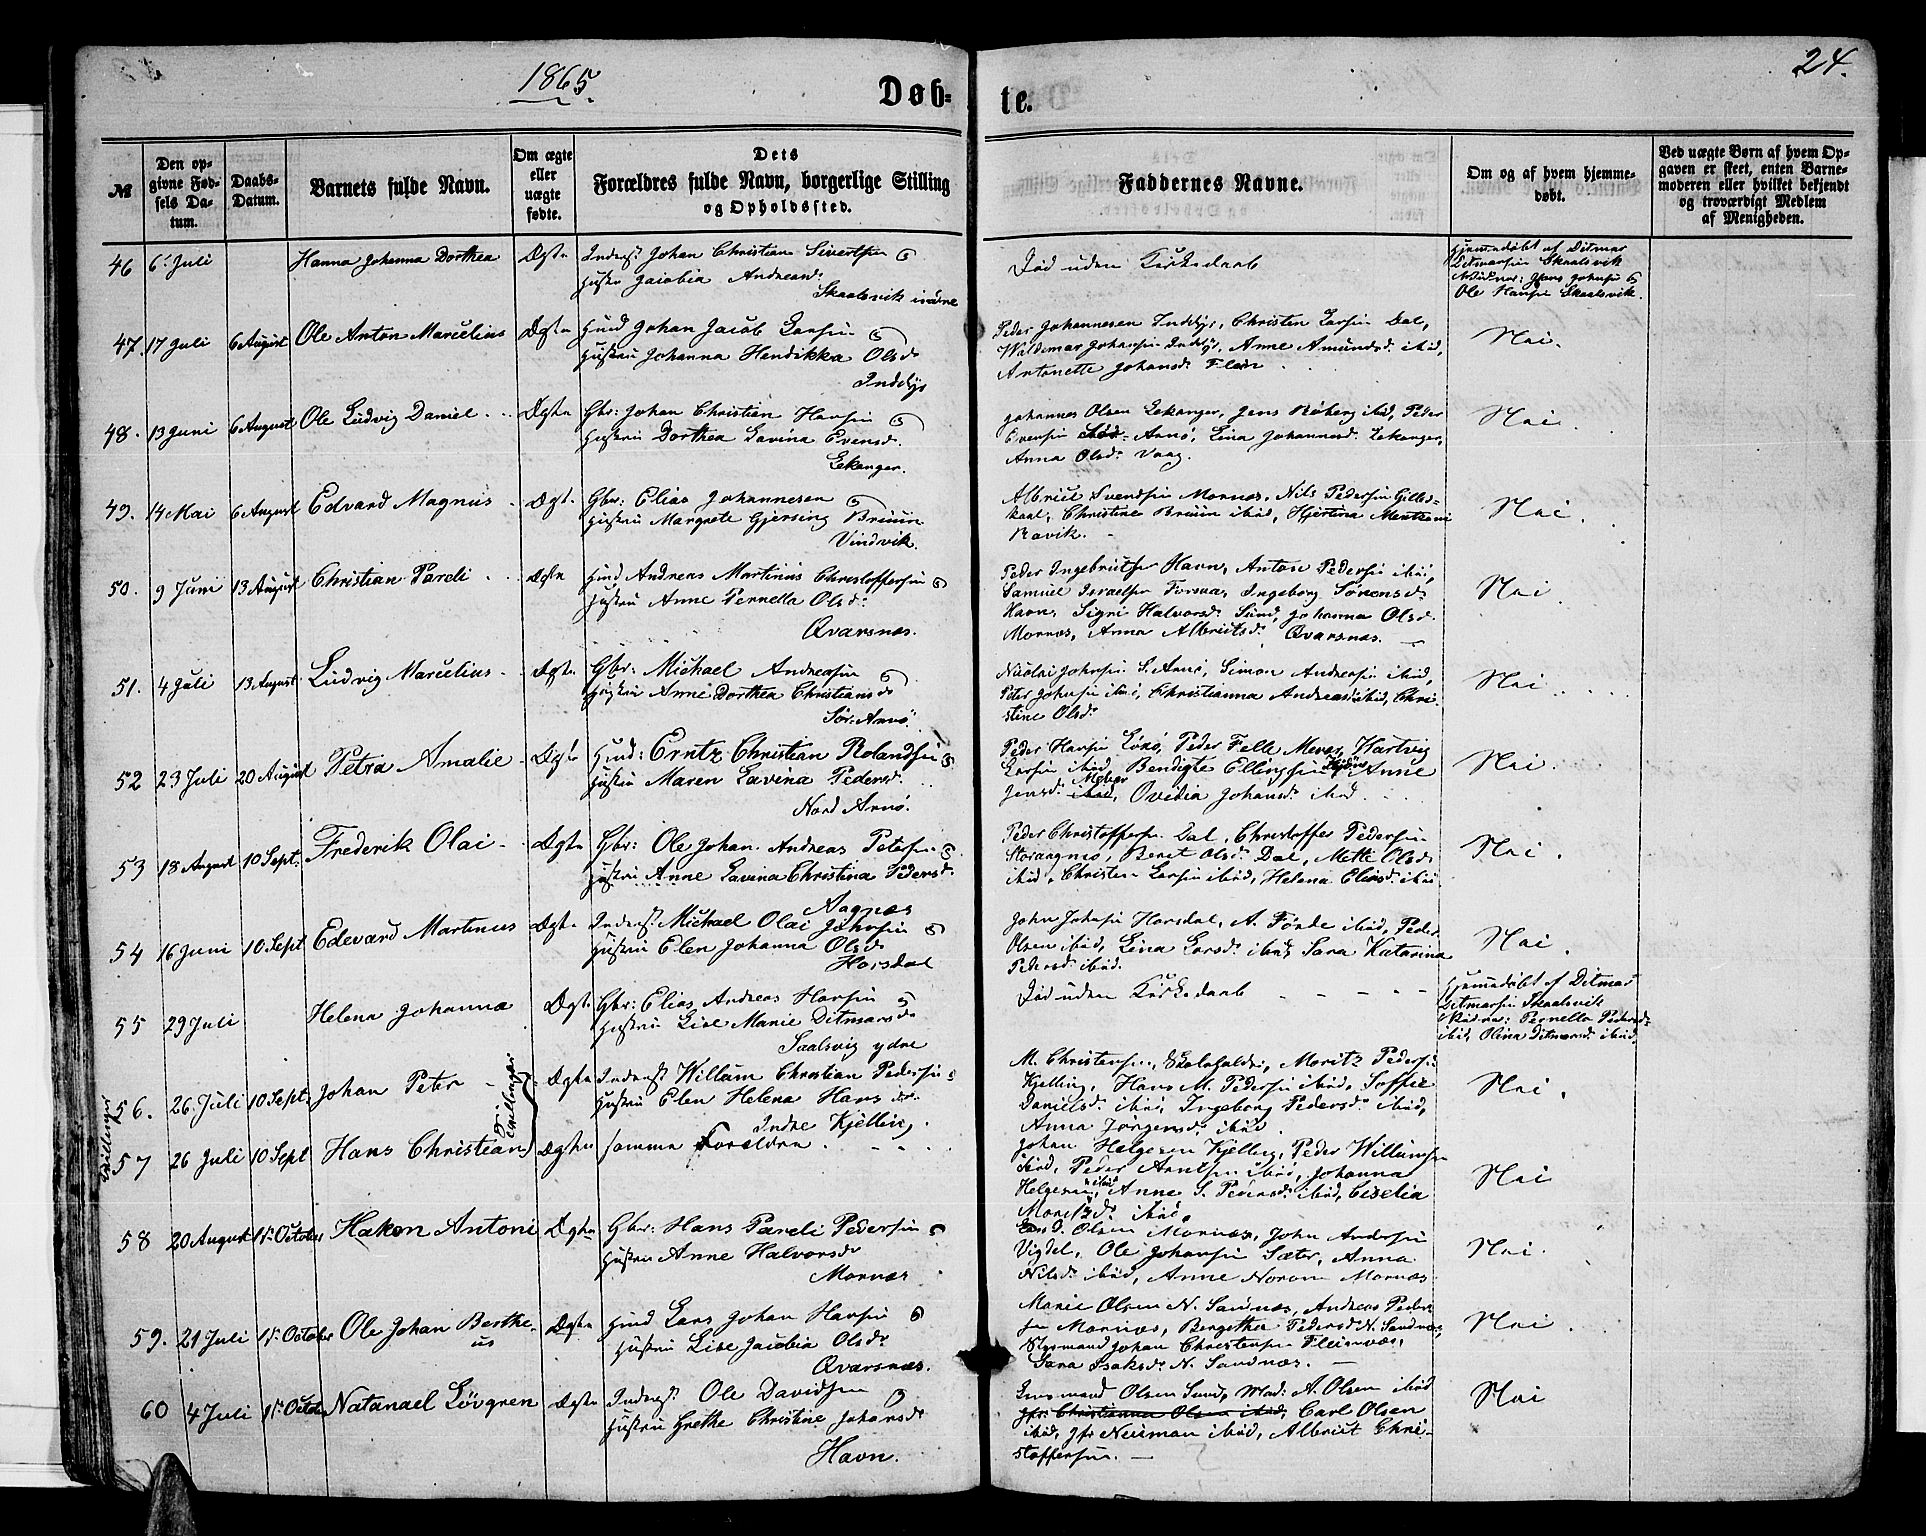 1865
24.
Døb-
te.
№
Den opgivne Fødsels Datum.
Daabs-Datum.
Barnets fulde Navn.
Om ægte eller uægte fødte.
Dets Forældres fulde Navn, borgerlige Stilling og Opholdssted.
Faddernes Navne.
Om og af hvem hjemmedøbt.
Ved uægte Børn af hvem Opgaven er skeet, enten Barnemoderen eller hvilket bekjendt og troværdigt Medlem af Menigheden.
46 6. Juli Hanna Johanna Dorthea Ægte Inderst Johan Christian Sivertsen og
Hustru Jacobia Andreasd.
Skaalsvik indre
Død uden Kirkedaab
Hjemmedøbt af Ditmar
Ditmarsen Skaalsvik
Ole Hansen Skaalsvik.
47. 17 Juli 6 August Ole Anton Marcelius Ægte Huusmd Johan Jacob Larsen og
Hustru Johanna Hendikka Olsd.
Inddyr
Peder Johannesen Inddyr, Christen Larsen Dal,
Waldemar Johansen Inddyr, Anne Amundsd. ibid,
Antonette Johansd. Flein
Nei.
48. 13 Juni 6 August Ole Ludvig Daniel Ægte Gbr: Johan Christian Hansen og
Hustru Dorthea Lavina Evensd.
Lekanger.
Johannes Olsen Lekanger, Jens Røberg ibid, Peder
Evensen Arnø, Lina Johannesd. Lekanger,
Anna Olsd. Vaag.
Nei.
49. 14 Mai 6 August Edvard Magnus Ægte Gbr: Elias Johannesen og
Hustru Margrete Gjersing Bruun
Vindvik.
Albrict Svendsen Mornæs, Nils Pedersen Gilles-
kaal, Christine Bruun ibid, Hjertina Mentzoni
Ravik.
Nei.
50. 9 Juni 13 August Christian Pareli Ægte Huusmd Andreas Martinus Christoffersen og
Hustru Anne Pernella Olsd.
Qvarsnæs.
Peder Ingebrictsen Havn, Anton Pedersen ibid,
Samuel Israelsen Forsvas, Ingeborg Sørensd.
Havn, Signi Halvorsd. Sund, Johanna Olsd.
Mornæs, Anna Albrictsd. Qvarsnæs.
Nei.
51. 4 Juli 13 August Ludvig Marcelius Ægte Gbr: Michael Andreasen og
Hustru Anne Dorthea Christiansd.
Sør. Arnø.
Nicolai Johnsen S. Arnø, Simon Andersen ibid,
Peter Johnsen ibid, Christianna Andreasd. ibid, Chri-
stine Olsd.
Nei.
52 23 Juli 20 August Petra Amalie Ægte Huusmd: Erntz Christian Rolandsen og
Hustru Maren Lavina Pedersd.
Nord Arnø.
Peder Hansen Lørø, Peder Felle Mevær, Hartvig
Larsen ibid, Bendigte Ellingsen Anne
Jensd. Mevær, Ovidia Johansd. ibid
Nei.
53 18 August 10 Sept. Frederik Olai Ægte Gbr: Ole Johan Andreas Petersen og
Hustru Anne Lavina Christina Pedersd.
Aagnæs
Peder Christoffersen Dal, Christoffer Pedersen
Beret Olsd. Dal, Mette Olsd.
ibid, Christen Larsen ibid, Helena Eliasd. ibid
Nei.
54 16 Juni 10 Sept Edevard Martinus Ægte Inderst Michael Olai Johnsen og
Hustru Elen Johanna Olsd.
Horsdal
John Johnsen Horsdal, A. Førde ibid, Peder
Olsen ibid, Lina Larsd. ibid, Sara Katarina
Pedersd. ibid.
Nei.
55 29 Juli Helena Johanna Ægte Gbr: Elias Andreas Hansen og
Hustru Lise Marie Ditmarsd.
Saalsvig ydre
Død uden Kirkedaab
Hjemmedøbt af Ditmar
Ditmarsen Skaalsvik
Pernella Pedersd.
ibid, Olina Ditmarsd. ibid.
56. 26 Juli 10 Sept. Johan Peter Tvillinger Ægte Inderst Willum Christian Pedersen og
Hustru Elen Helena Hansd.
Indre Kjelling.
M. Christensen, Moritz Pedersen
Kjelling, Hans M. Pedersen ibid, Soffie
Danielsd. ibid, Ingeborg Pedersd. ibid,
Anna Jørgensd. ibid.
Nei.
Tvillinger
57 26 Juli 10 Sept Hans Christian Ægte samme Forældre.
Johan Helgesen Kjelling, Peder Willumsen
ibid, Peder Arntsen ibid, Johanna
Helgesen ibid, Anne S. Pedersd. ibid, Ciselia
Moritzd. ibid.
Nei
58 20 August 15. October Hakon Antoni Ægte Gbr: Hans Pareli Pedersen og
Hustru Anne Halvorsd.
Mornæs
Olsen Mornæs, John Andersen
Vigdel, Ole Johansen Sæter, Anna
Nilsd. ibid, Anne Norum Mornæs.
Nei.
59. 21 Juli 15. October Ole Johan Berthe-
us Ægte Huusmd Lars Johan Hansen og
Hustru Lise Jacobia Olsd.
Qvarsnæs.
Marie Olsen N. Sandnæs, Andreas Peder-
sen Mornæs, Bergitha Pedersd. N. Sandnæs,
Styrmand Johan Christensen Fleinvær,
Sara Isaksd. N. Sandnæs.
Nei.
60 4 Juli 15. Octob. Natanael Løvgren Ægte Inderst Ole Davidsen og
Hustru Grethe Christine Johansd.
Havn.
Olsen Sund, Mad: A. Olsen ibid
Jfr: Christianna Olsen ibid, Carl Olsen
ibid, Jfr Neuman ibid, Albrict Chri-
stoffersen.
Nei